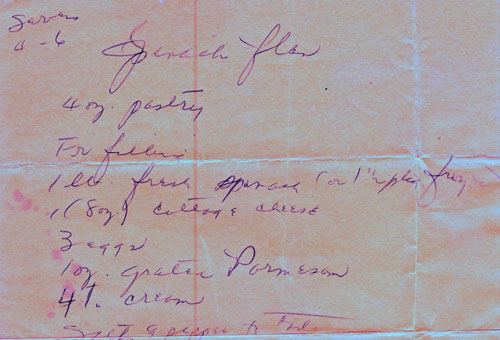 Serves
4-6
Spinach flan
4 oz. pastry
For filling
1 lb. fresh spinach (or 1 pkg froz
1 (8oz) cottage cheese
3 eggs
1 oz. grated Parmesan
4 T. cream
Salt & pepper to